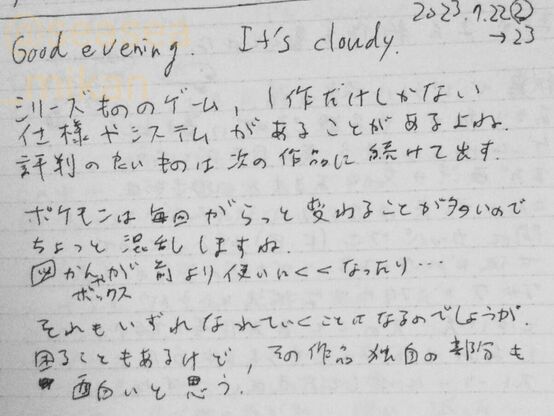 2023.7.22②
→23
Good evening. It's cloudy.
@seesea
_mikan
シリーズもののゲーム, 1作だけしかない
仕様やシステムがあることがあるよね.
評判のたいものは次の作品に続けて出す.
ポケモンは毎回がらっと変わることが多いので
ちょっと混乱しますね.
図かんやが前より使いにくくなったり…
ボックス
それもいずれなれていくことになるのでしょうが.
困ることもあるけど, その作品独自の部分も
面白いと思う.